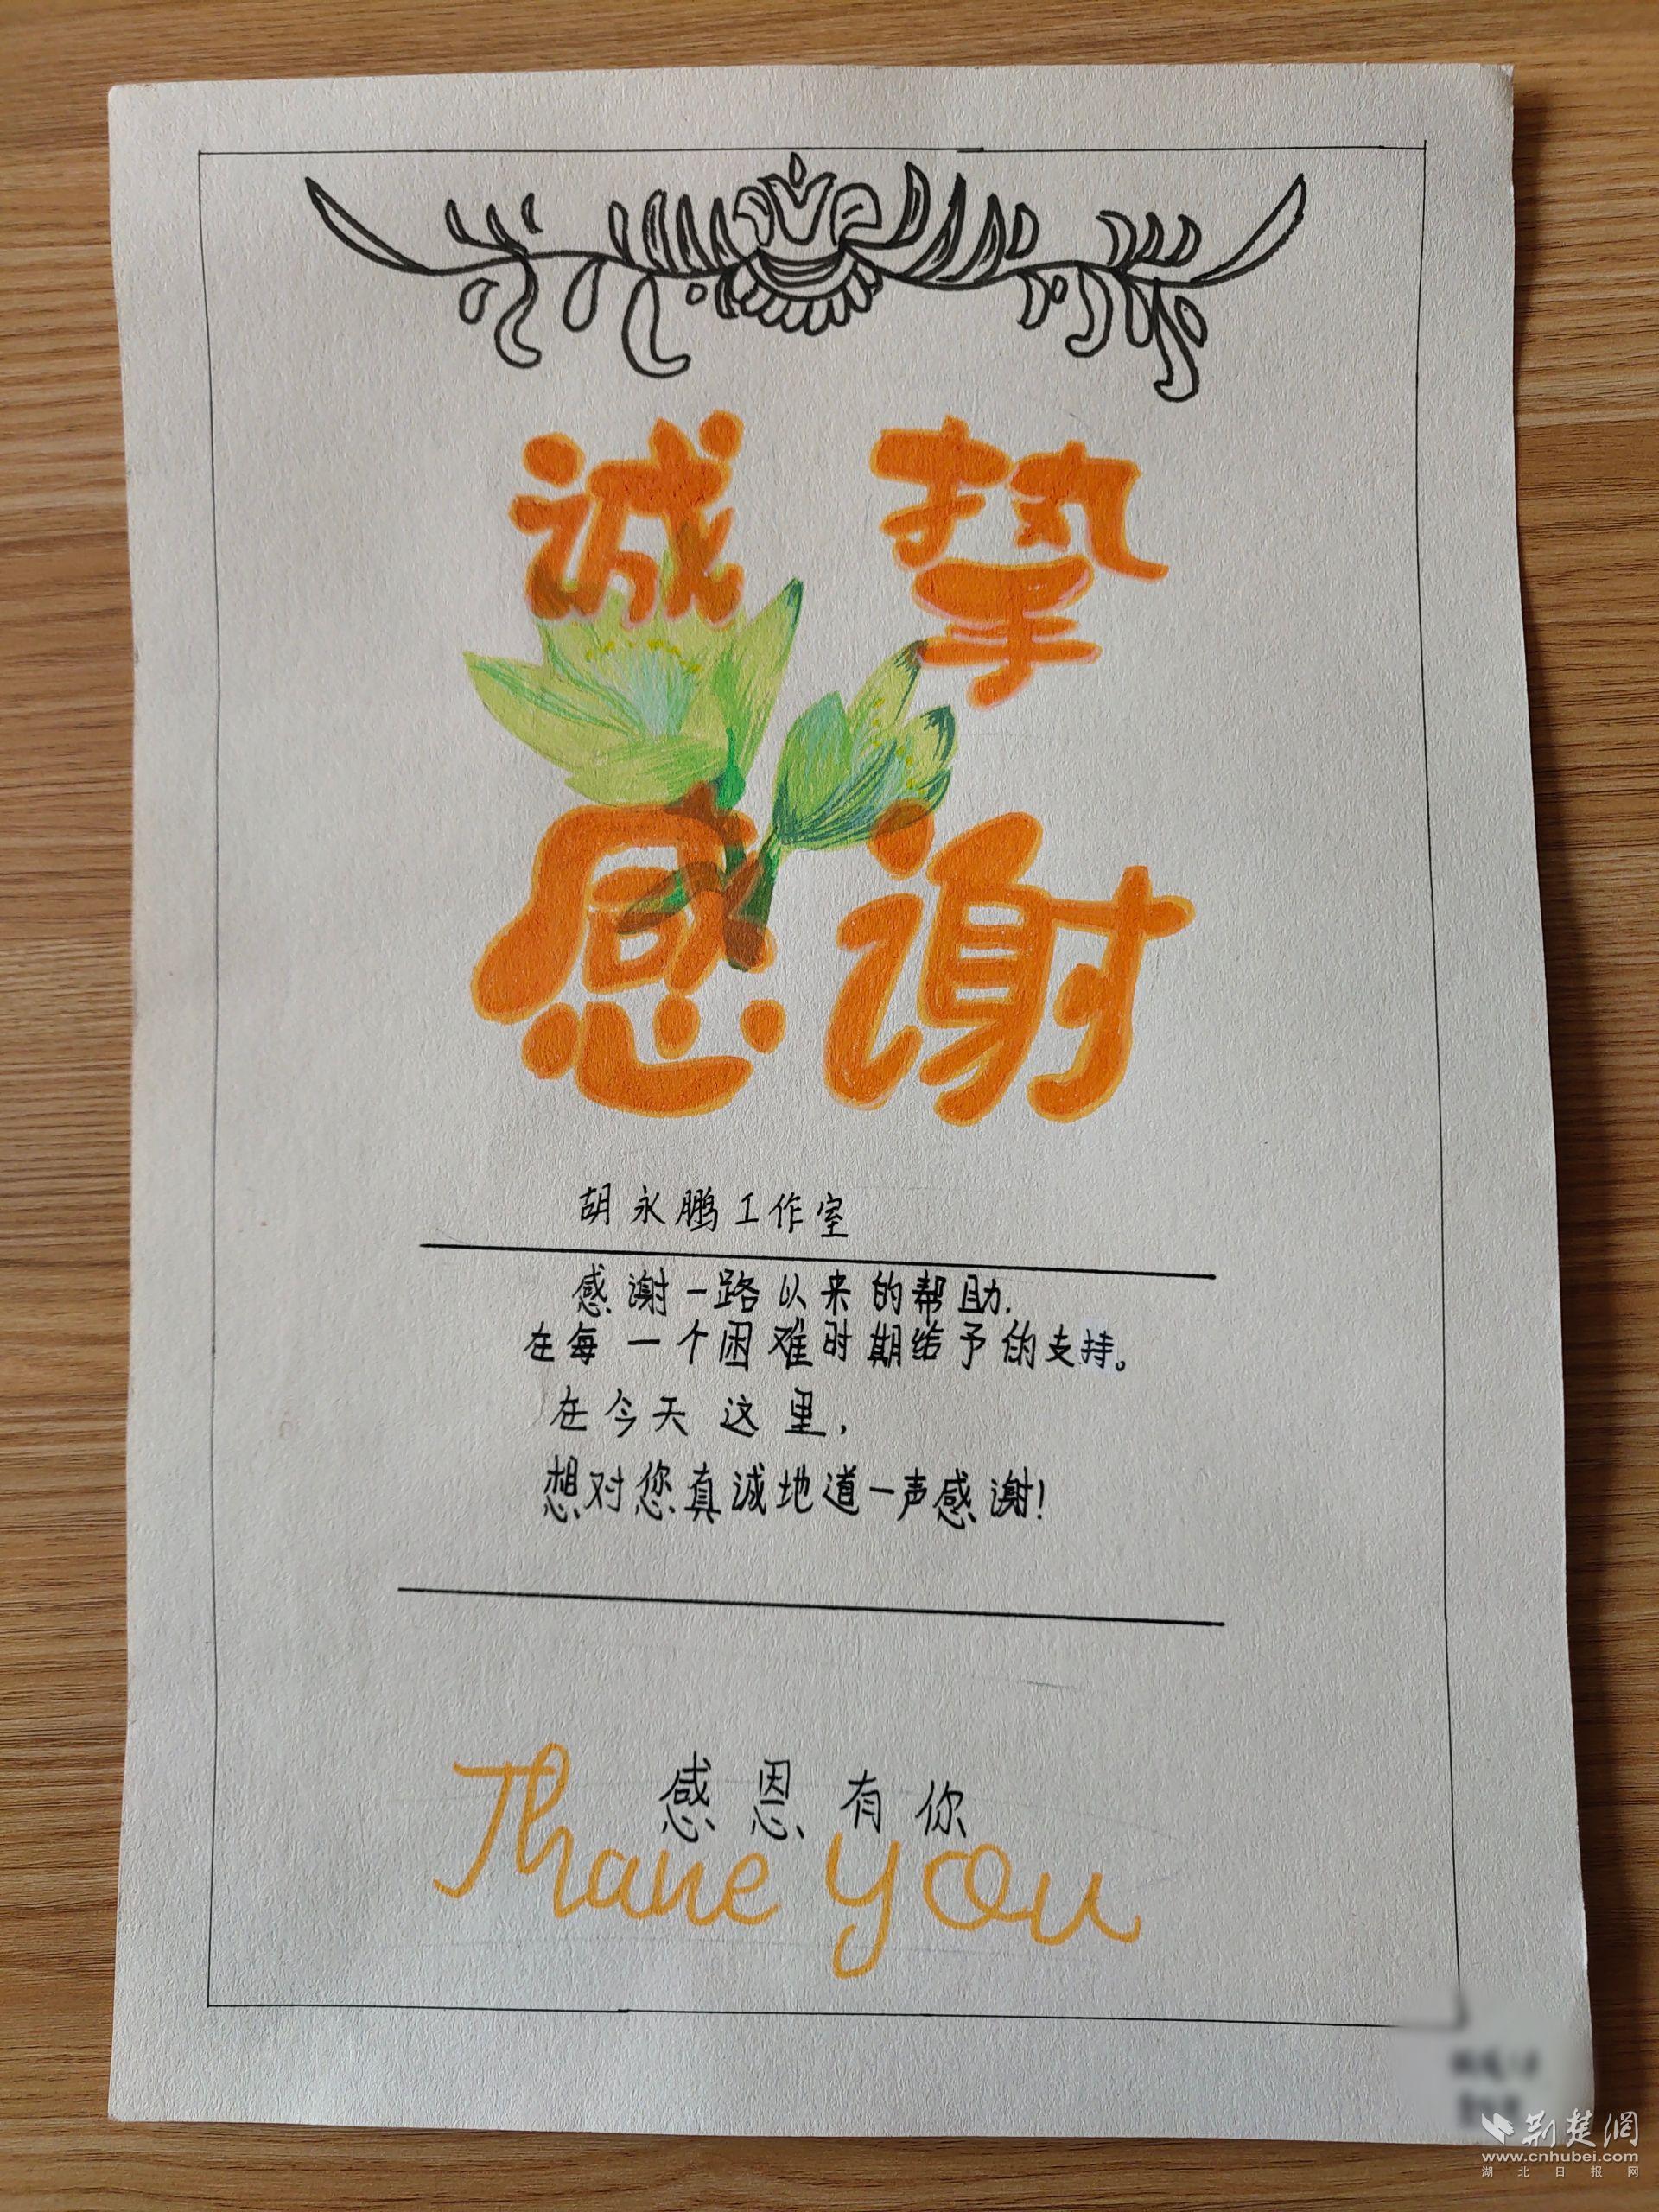 诚挚
感谢
胡永鹏工作室
感谢一路以来的帮助.
在每一个困难时期给予的支持。
在今天这里，
想对您真诚地道一声感谢！
感恩有你
Thank you
荆楚网
www.cnhubei.com
湖北日报网